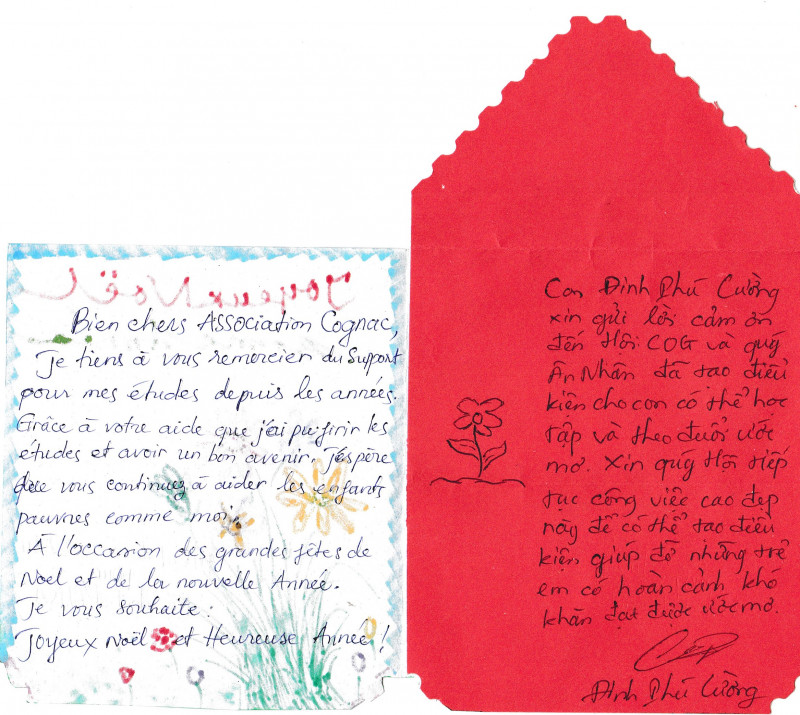 Joyeux Noël
Bien chers Association Cognac,
Je tiens à vous remercier du Support
pour mes études depuis les années.
Grâce à votre aide que j'ai pu finir les
études et avoir un bon avenir. J'espère
que vous continuez à aider les enfants
pauvres comme moi.
À l'occasion des grandes fêtes de
Noël et de la nouvelle Année.
Je vous souhaite :
Joyeux Noël et Heureuse Année !
Con Đinh Phú Cường
xin gửi lời cảm ơn
đến Hội COG và quý
Ân Nhân đã tạo điều
kiện cho con có thể học
tập và theo đuổi ước
mơ. Xin quý Hội tiếp
tục công việc cao đẹp
này để có thể tạo điều
kiện, giúp đỡ những trẻ
em có hoàn cảnh khó
khăn đạt được ước mơ.
Đinh Phú Cường